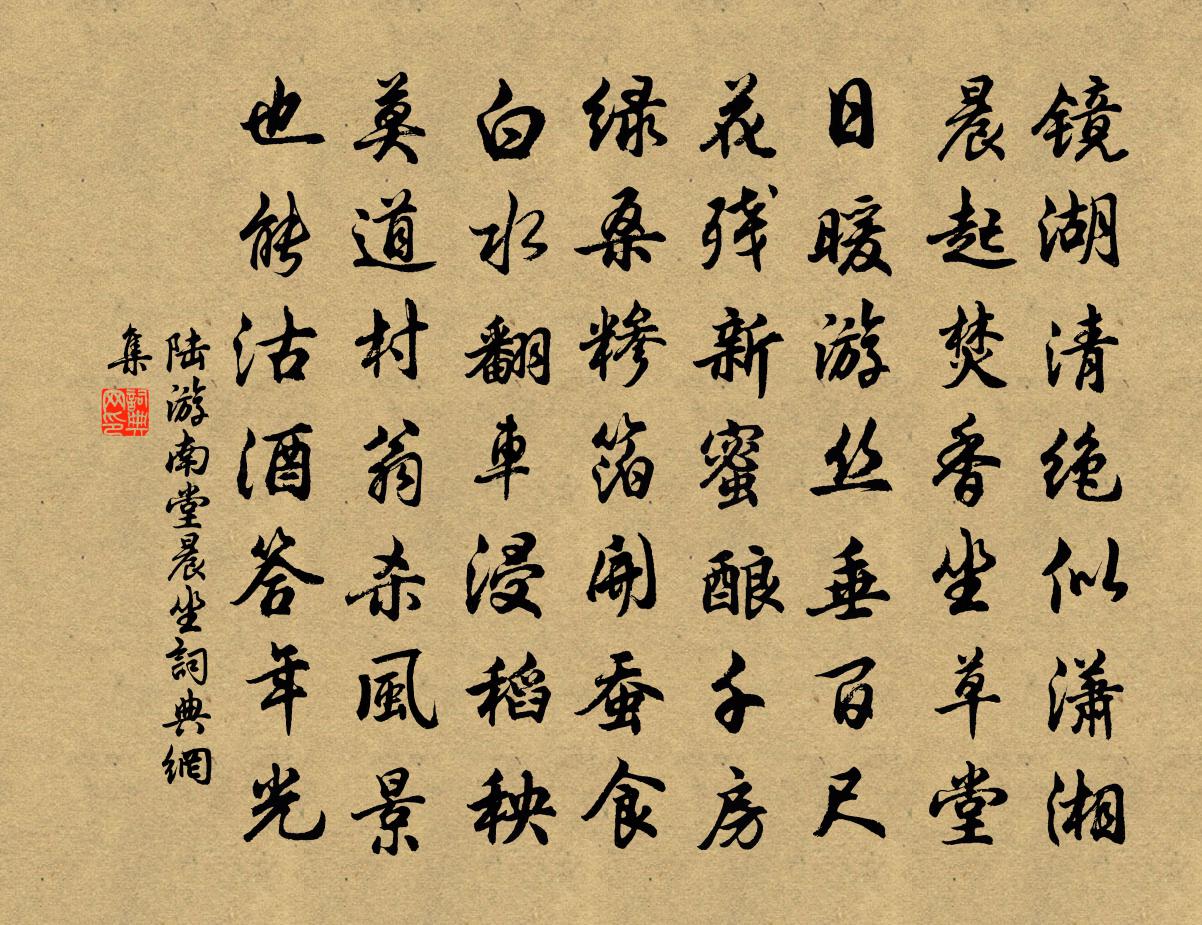 镜湖清绝似潇湘
晨起焚香坐草堂
日暖游丝垂百尺
花残新蜜酿千房
绿桑糁箔开蚕食
白水翻車浸稻秧
莫道村翁杀風景
也能沽酒答年光
陆游南堂晨坐詞典網
集
詞典網印